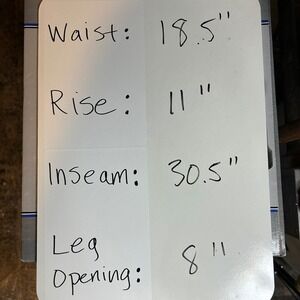 Waist: 18.5"
Rise: 11"
Inseam: 30.5"
Leg
Opening: 8"